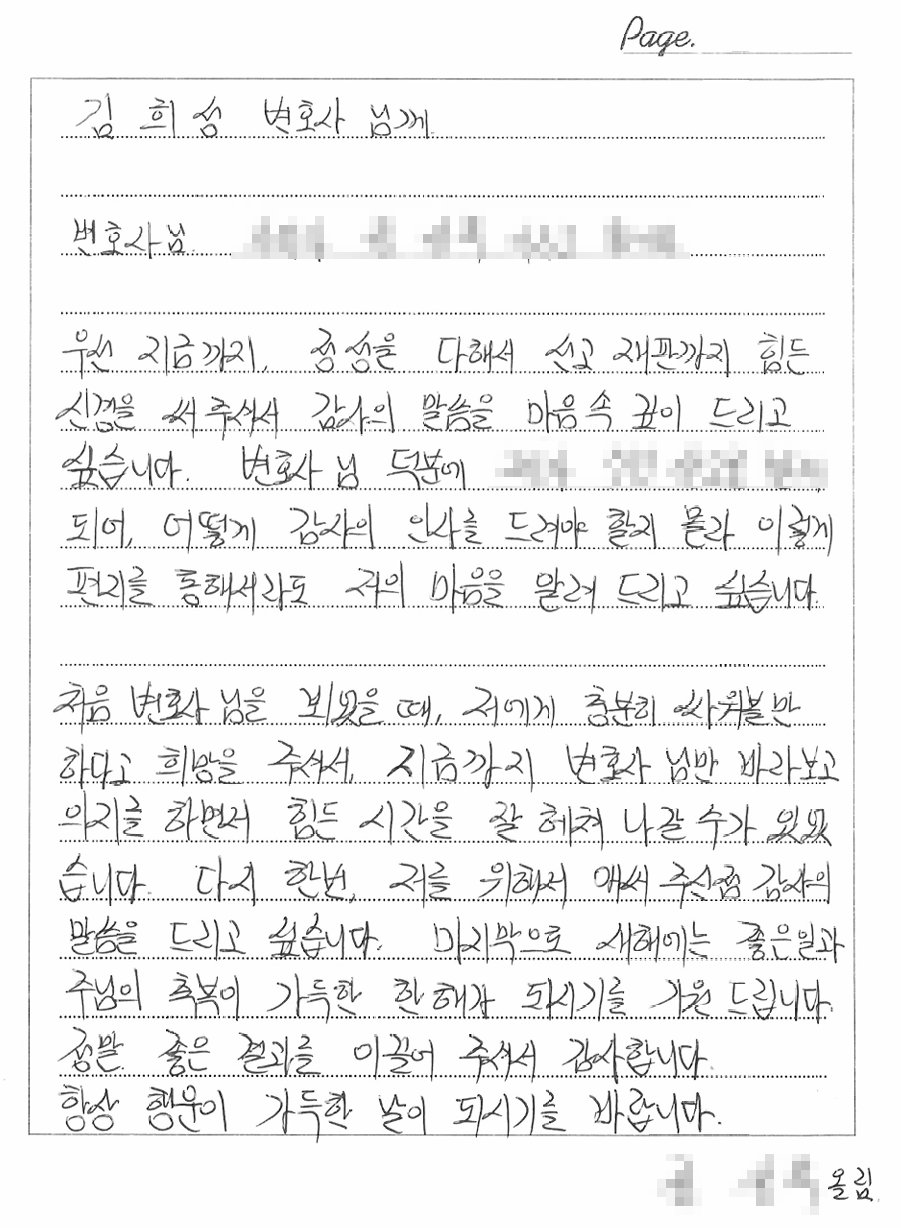 Page.
김 희 성 변호사 님께.
변호사님.
우선 지금까지, 정성을 다해서 선고 재판까지 힘든
신경을 써 주셔서 감사의 말씀을 마음속 깊이 드리고
싶습니다. 변호사 님 덕분에
되어, 어떻게 감사의 인사를 드려야 할지 몰라 이렇게
편지를 통해서라도 저의 마음을 알려 드리고 싶습니다.
처음 변호사 님을 뵈었을 때, 저에게 충분히 싸워볼만
하다고 희망을 주셔서, 지금까지 변호사 님만 바라보고
의지를 하면서 힘든 시간을 잘 헤쳐 나갈 수가 있었
습니다. 다시 한번, 저를 위해서 애써 주신점 감사의
말씀을 드리고 싶습니다. 마지막으로 새해에는 좋은일과
주님의 축복이 가득한 한 해가 되시기를 기원 드립니다.
정말 좋은 결과를 이끌어 주셔서 감사합니다.
항상 행운이 가득한 날이 되시기를 바랍니다.
올림